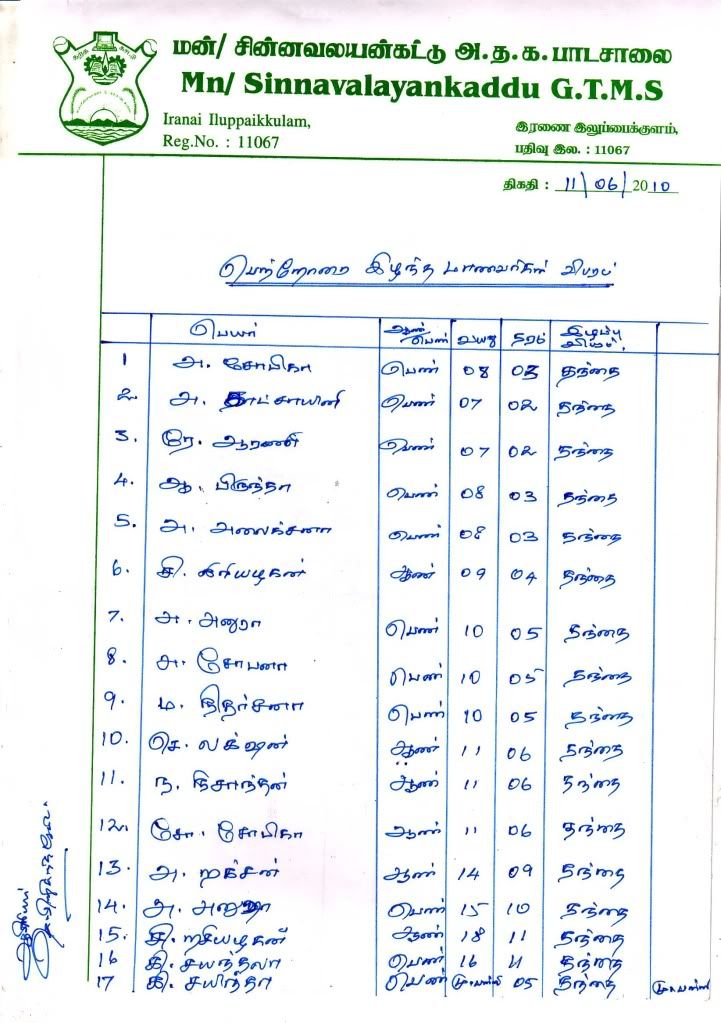 மன்/ சின்னவலயன்கட்டு அ.த.க.பாடசாலை
Mn/ Sinnavalayankaddu G.T.M.S
Iranai Iluppaikkulam,
Reg.No. : 11067
இரணை இலுப்பைக்குளம்,
பதிவு இல. : 11067
திகதி : 11/06/2010
பெற்றோரை இழந்த மாணவர்கள் விபரம்
பெயர் ஆண் பெண் வயது தரம் இழப்பு விபரம்
1 அ. சோபிகா பெண் 08 03 தந்தை
2. அ. தாட்சாயினி பெண் 07 02 தந்தை
3. ரே. ஆரணி பெண் 07 02 தந்தை
4. ஆ. பிருந்தா பெண் 08 03 தந்தை
5. அ. அலைக்சனா பெண் 08 03 தந்தை
6. சி. ஆண் 09 04 தந்தை
7. அ. அனுரா பெண் 10 05 தந்தை
8. அ. சோபனா பெண் 10 05 தந்தை
9. ம. நிதர்சனா பெண் 10 05 தந்தை
10. செ. லக்ஷன் ஆண் 11 06 தந்தை
11. ந. நிசாந்தன் ஆண் 11 06 தந்தை
12. சோ. சோபிகா ஆண் 11 06 தந்தை
13. அ. றக்சன் ஆண் 14 09 தந்தை
14. அ. பெண் 15 10 தந்தை
15. சி. ஆண் 18 11 தந்தை
16 கி. சயந்தலா பெண் 16 11 தந்தை
17 கி. சயிந்தா பெண் 05 தந்தை